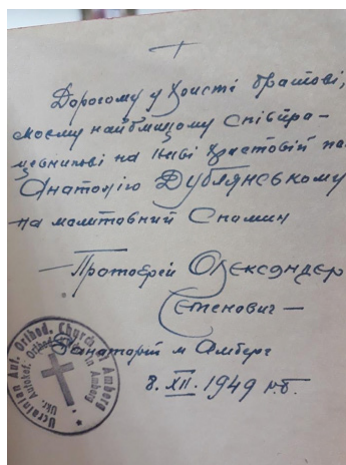 Дорогому у Христі братові,
моєму найближчому співпра-
цевникові на ниві Христовій па
Анатолію Дублянському
на молитовний Спомин
Протоєрей Олександер
Семенович
Санаторій м Амберг
8. XII. 1949 р.б.
Ukrainian Aut. Orthod. Church Amberg
Ukr. Autokef. Orthod. in Amberg